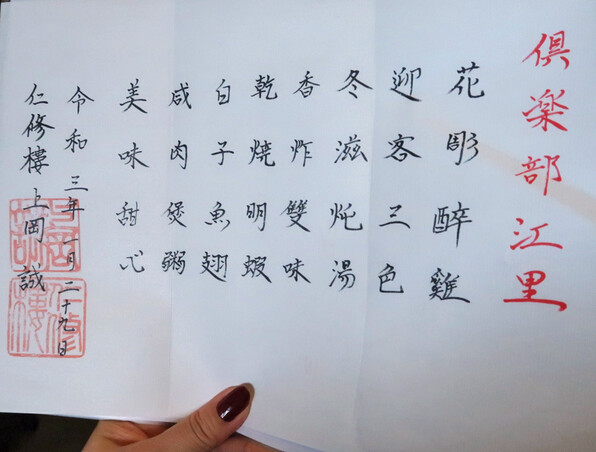 倶楽部江里
花彫醉雞
迎客三色
冬滋炖湯
香炸雙味
乾燒明蝦
白子魚翅
咸肉煲粥
美味甜心
令和三年一月二十九日
仁修樓上岡誠